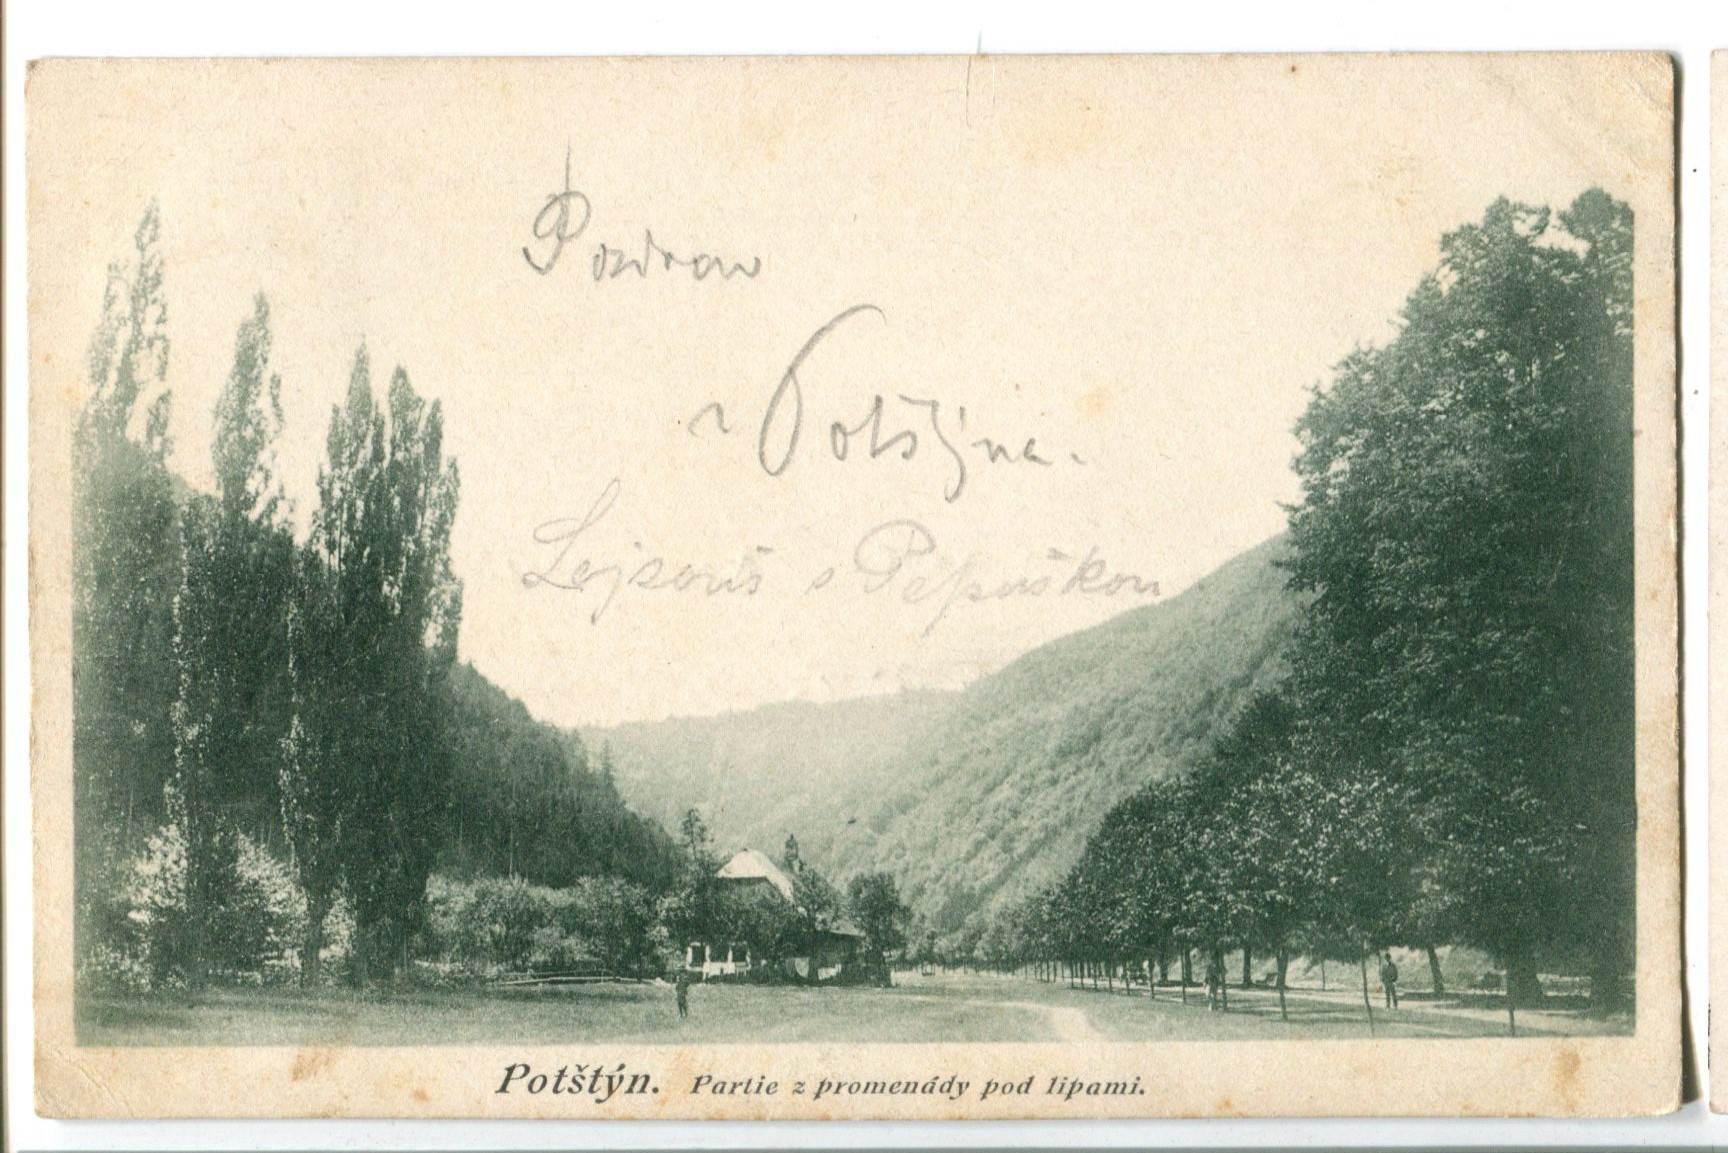 Pozdrav
z Potštýna.
Lojzouš s Pepuškou
Potštýn. Partie z promenády pod lipami.